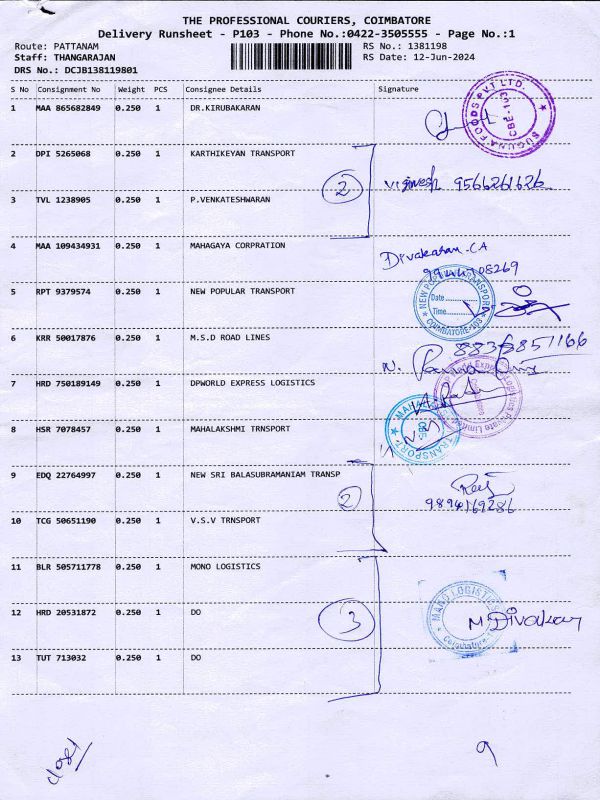 THE PROFESSIONAL COURIERS, COIMBATORE
Delivery Runsheet - P103 - Phone No.:0422-3505555 - Page No.:1
Route: PATTANAM RS No.: 1381198
Staff: THANGARAJAN RS Date: 12-Jun-2024
DRS No.: DCJB138119801
S No Consignment No Weight PCS Consignee Details Signature
1 MAA 865682849 0.250 1 DR.KIRUBAKARAN
SUGUNA FOODS PVT LTD. CBE-103
2 DPI 5265068 0.250 1 KARTHIKEYAN TRANSPORT
2 Vignesh 9566261626
3 TVL 1238905 0.250 1 P.VENKATESHWARAN
4 MAA 109434931 0.250 1 MAHAGAYA CORPRATION
Divakaran.CA
5 RPT 9379574 0.250 1 NEW POPULAR TRANSPORT
NEW POPULAR TRANSPORT Date Time COIMBATORE-103
6 KRR 50017876 0.250 1 M.S.D ROAD LINES
7 HRD 750189149 0.250 1 DPWORLD EXPRESS LOGISTICS
8 HSR 7078457 0.250 1 MAHALAKSHMI TRNSPORT
TRANSPORT
9 EDQ 22764997 0.250 1 NEW SRI BALASUBRAMANIAM TRANSP
2
9894169286
10 TCG 50651190 0.250 1 V.S.V TRNSPORT
11 BLR 505711778 0.250 1 MONO LOGISTICS
12 HRD 20531872 0.250 1 DO
3 MANO LOGISTICS Coimbatore M.Divakar
13 TUT 713032 0.250 1 DO
9